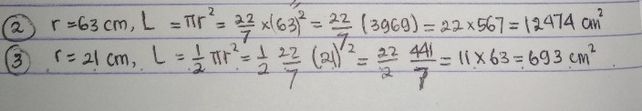 ② r = 63 cm, L = πr² = 22/7 × (63)² = 22/7 (3969) = 22 × 567 = 12474 cm²
③ r = 21 cm, L = 1/2 πr² = 1/2 22/7 (21)² = 22/2 441/7 = 11 × 63 = 693 cm²